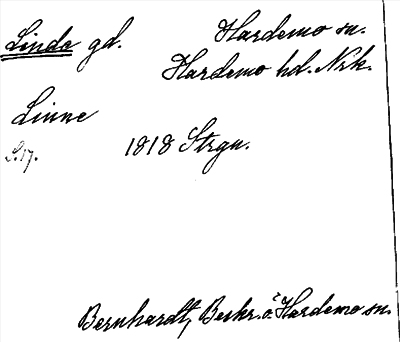 Linda gd. Hardemo sn.
Hardemo hd. Nrk.
Linne
S. 17. 1818 Strgn.
Bernhardt, Beskr. ö. Hardemo sn.